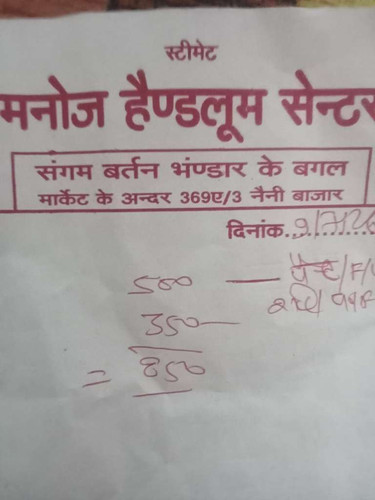 स्टीमेट
मनोज हैण्डलूम सेन्टर
संगम बर्तन भंण्डार के बगल
मार्केट के अन्दर 369ए/3 नैनी बाजार
दिनांक
500 —
350 —
= 850